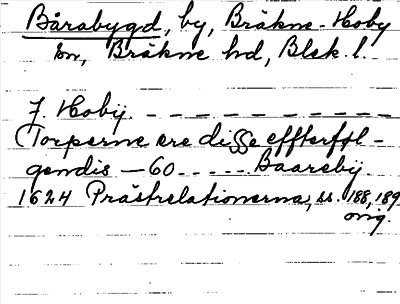 Bårabygd, by, Bräkne-Hoby
sn, Bräkne hd, Blek. l.
J. Hobij. - - - - - - - - - -
(Torperne ere disse effterføl-
gendis - 60 - - - - - Baarebij.
1624 Prästrelationerna, ss. 188, 189
orig.